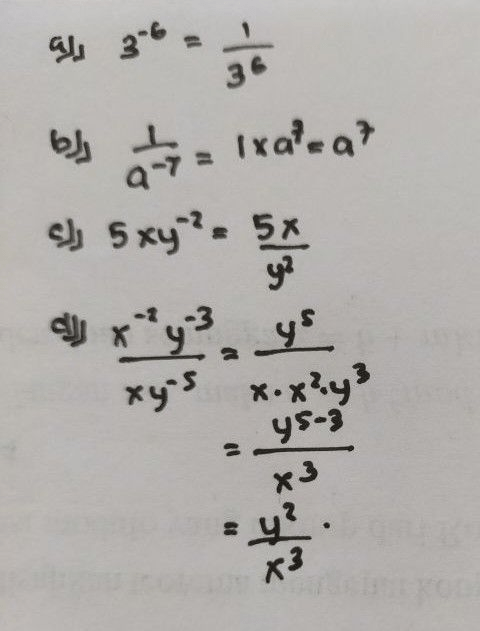 a) 3⁻⁶ = 1/3⁶
b) 1/a⁻⁷ = 1xa⁷ = a⁷
c) 5xy⁻² = 5x/y²
d) x⁻²y⁻³/xy⁻⁵ = y⁵/x·x²·y³
= y⁵⁻³/x³
= y²/x³.